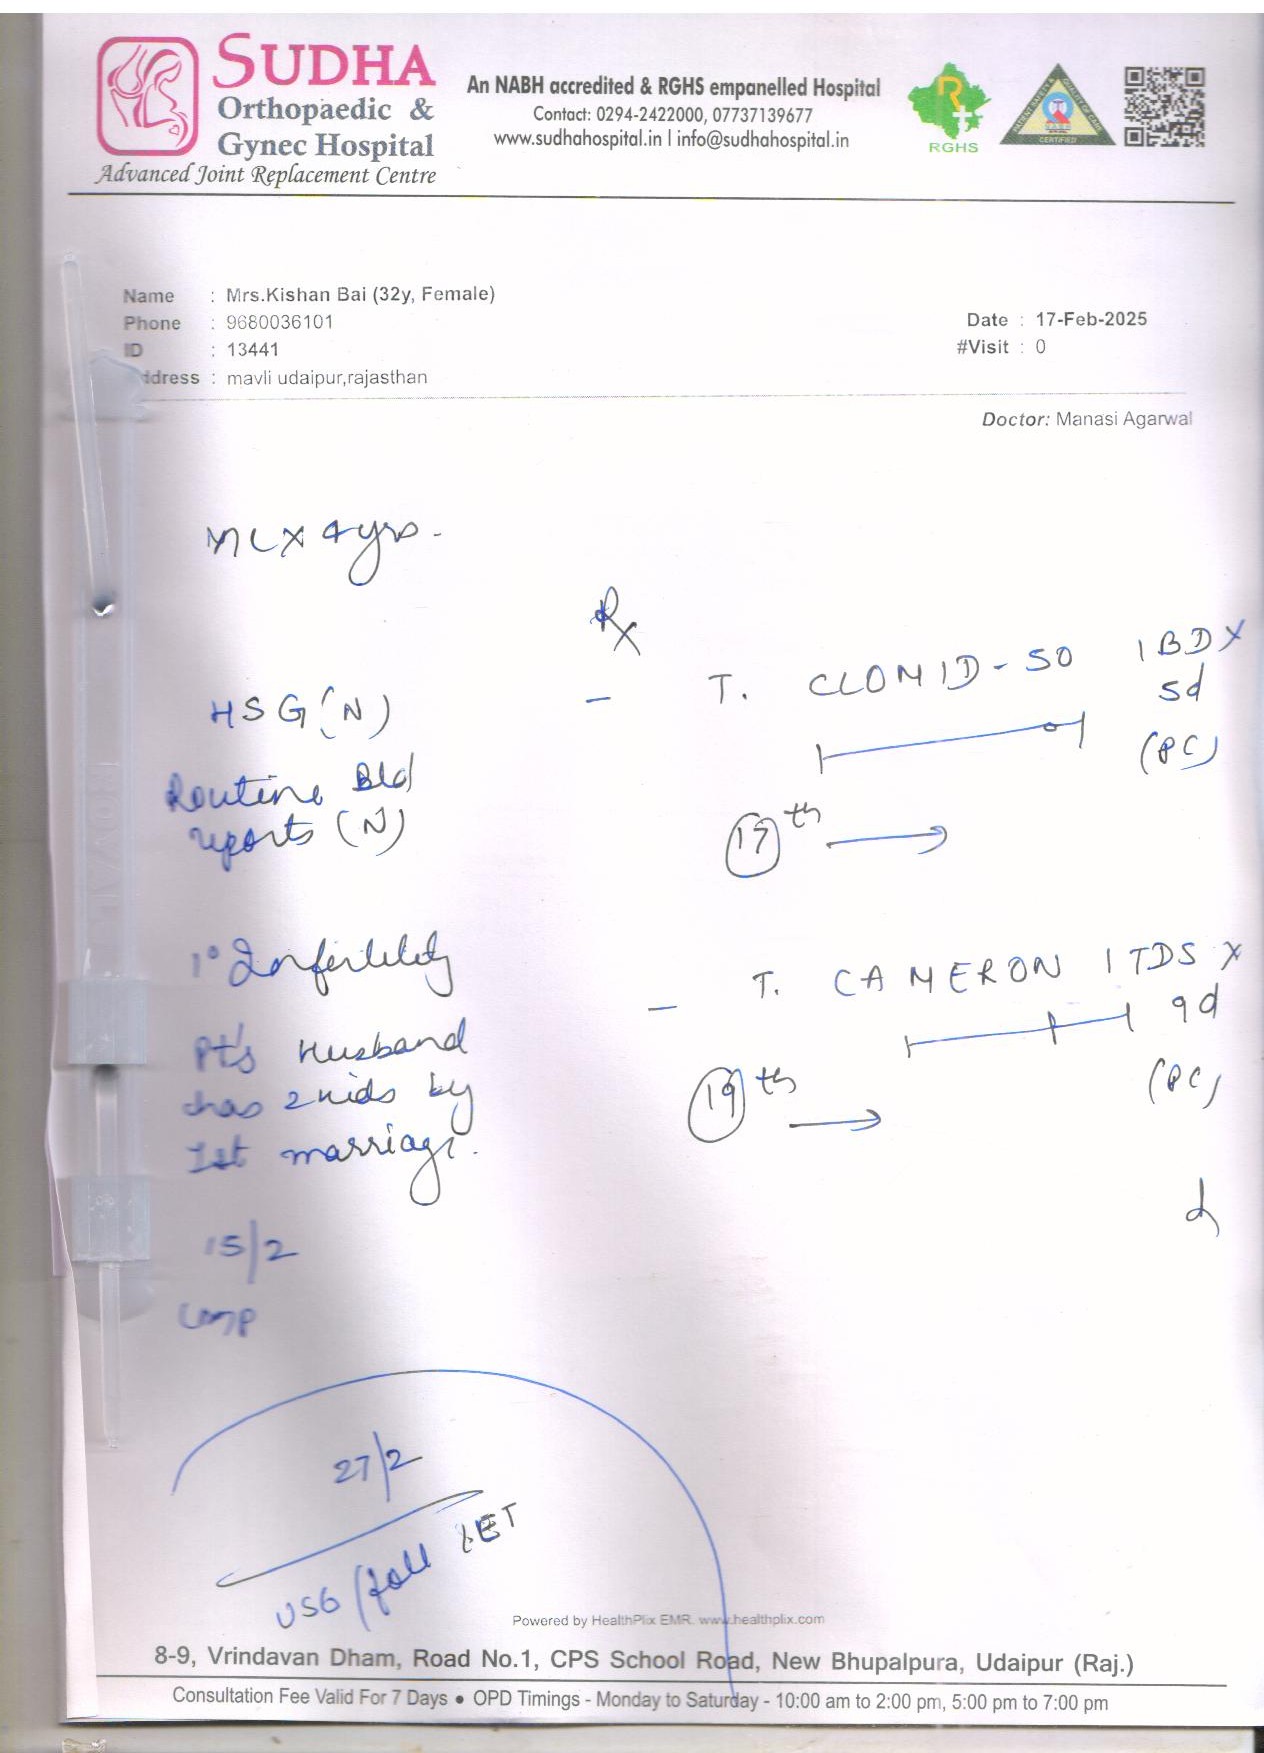 SUDHA
Orthopaedic &
Gynec Hospital
Advanced Joint Replacement Centre
An NABH accredited & RGHS empanelled Hospital
Contact: 0294-2422000, 07737139677
www.sudhahospital.in | info@sudhahospital.in
RGHS
CERTIFIED
Name : Mrs.Kishan Bai (32y, Female)
Phone : 9680036101
ID : 13441
ddress : mavli udaipur,rajasthan
Date : 17-Feb-2025
#Visit : 0
Doctor: Manasi Agarwal
ML X 4 yrs -
HSG (N)
Routine Bld
reports (N)
1° Infertility
Pt's Husband
has 2 kids by
1st marriage.
15/2
LMP
Rx
- T. CLOMID-50 1 BD X
5d
(PC)
17th →
- T. CAMERON 1 TDS X
9d
(PC)
19th →
27/2
USG/foll ET
Powered by HealthPlix EMR. www.healthplix.com
8-9, Vrindavan Dham, Road No.1, CPS School Road, New Bhupalpura, Udaipur (Raj.)
Consultation Fee Valid For 7 Days • OPD Timings - Monday to Saturday - 10:00 am to 2:00 pm, 5:00 pm to 7:00 pm